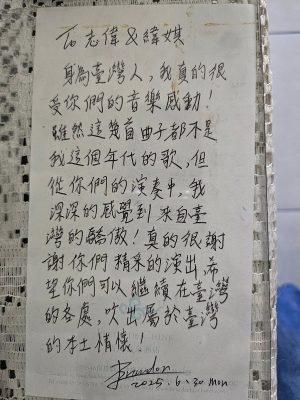 To 志偉 & 緯娸
身為臺灣人，我真的很
受你們的音樂感動！
雖然這幾首曲子都不是
我這個年代的歌，但
從你們的演奏中，我
深深的感覺到來自臺
灣的驕傲！真的很謝
謝你們精采的演出，希
望你們可以繼續在臺灣
的各處，吹出屬於臺灣
的本土情懷！
Brandon
2025.6.30 Mon